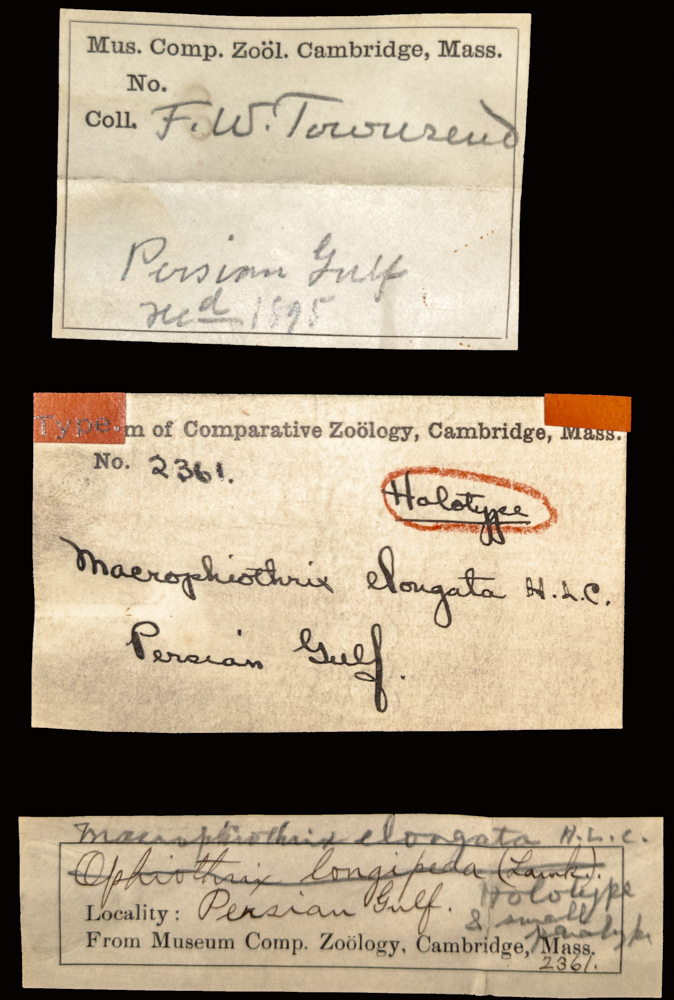 Mus. Comp. Zoöl. Cambridge, Mass.
No.
Coll. F. W. Townsend
Persian Gulf
recd 1895
Type. m of Comparative Zoölogy, Cambridge, Mass.
No. 2361.
Holotype
Macrophiothrix elongata H.L.C.
Persian Gulf.
Macrophiothrix elongata H.L.C.
Ophiothrix longipeda (Lamk).
Holotype
Locality: Persian Gulf.
& small
paratype
From Museum Comp. Zoölogy, Cambridge, Mass.
2361.